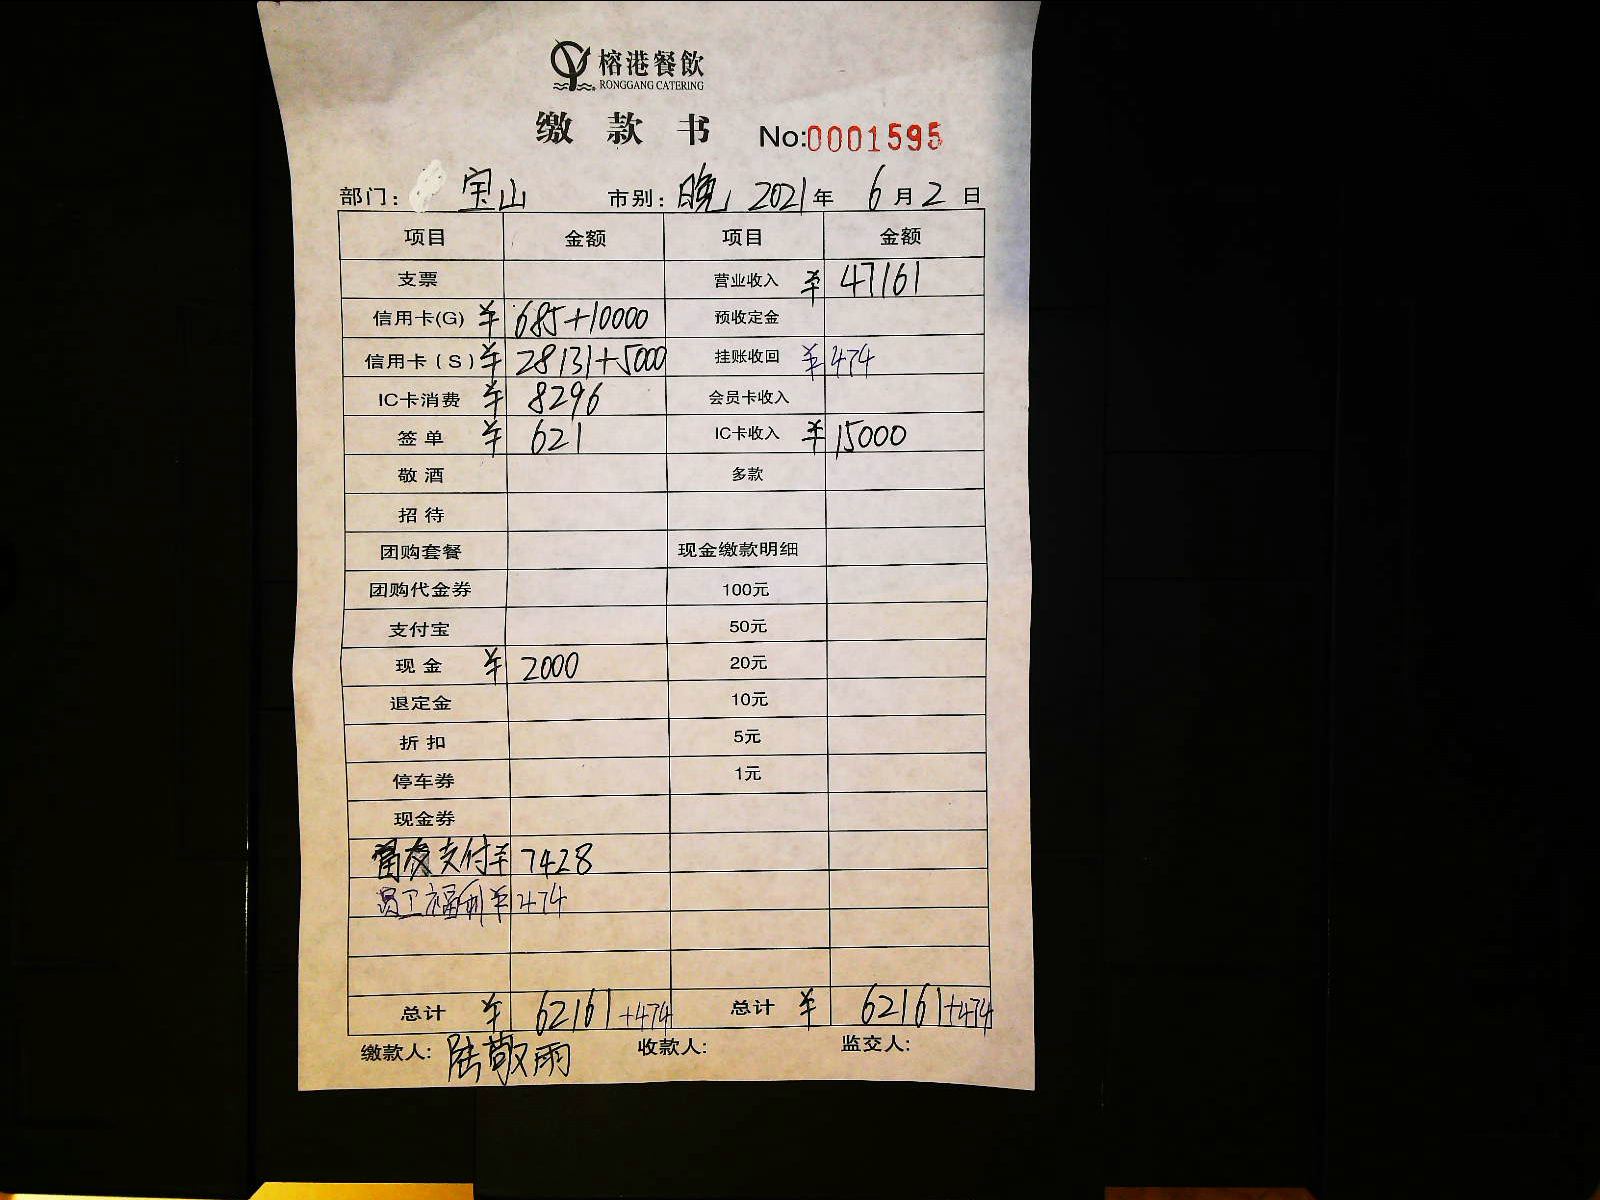 榕港餐飲
RONGGANG CATERING
缴款书 No:0001595
部门: 宝山 市别: 晚 2021年 6月2日
项目 金额 项目 金额
支票 营业收入 ¥ 47161
信用卡(G) ¥ 685+10000 预收定金
信用卡(S) ¥ 28131+5000 挂账收回 ¥ 474
IC卡消费 ¥ 8296 会员卡收入
签单 ¥ 621 IC卡收入 ¥ 15000
敬酒 多款
招待
团购套餐 现金缴款明细
团购代金券 100元
支付宝 50元
现金 ¥ 2000 20元
退定金 10元
折扣 5元
停车券 1元
现金券
支付 ¥ 7428
员工福利 ¥ 474
总计 ¥ 62161+474 总计 ¥ 62161+474
缴款人: 陆敬雨 收款人: 监交人: